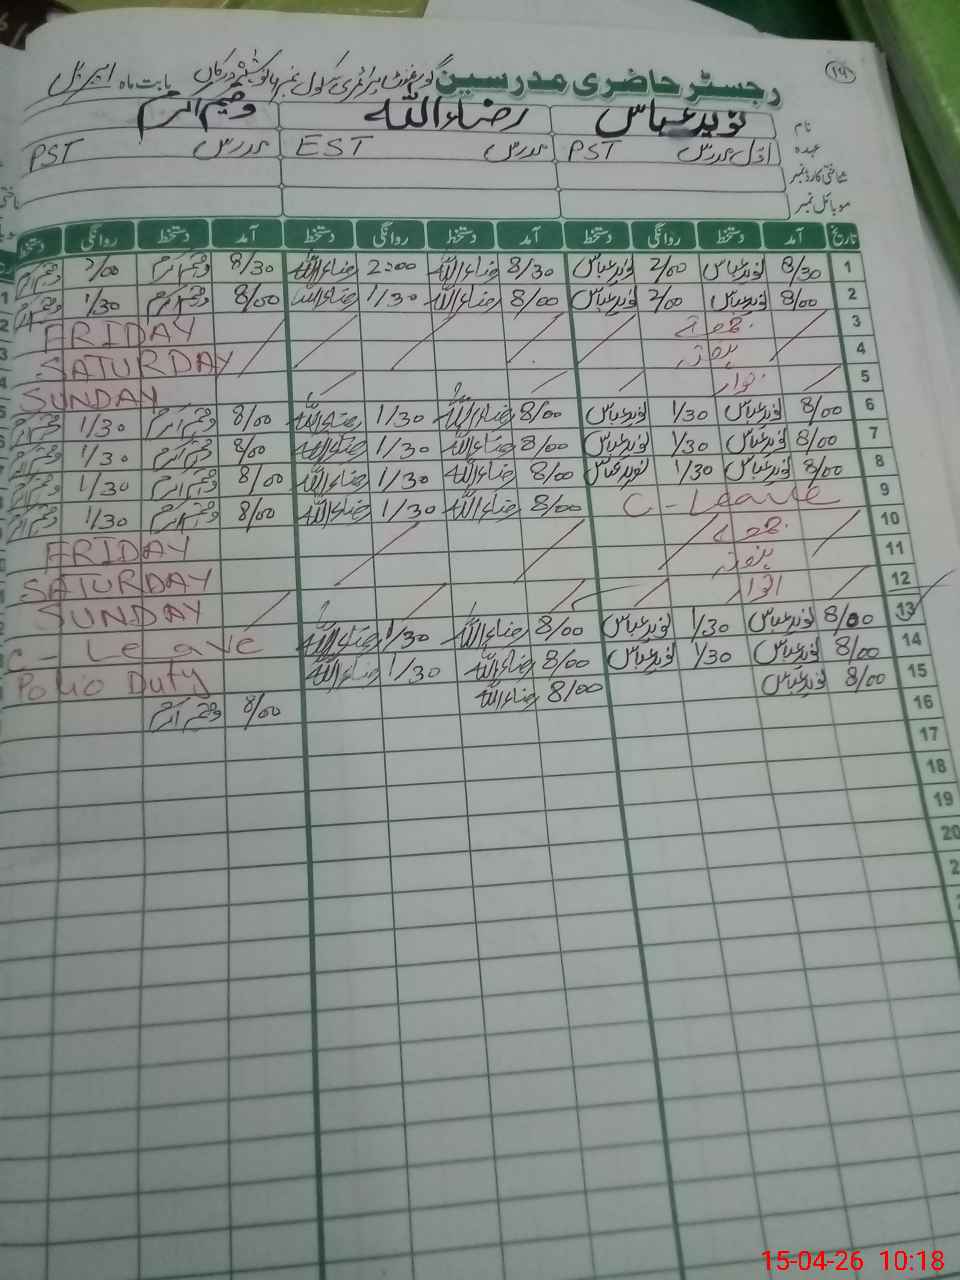 ۱۹
رجسٹر حاضری مدرسین گورنمنٹ پرائمری سکول نمبر بابت ماہ اپریل
نام نوید عباس رضاء اللہ وسیم اکرم
عہدہ اوّل مدرس PST مدرس EST مدرس PST
شناختی کارڈ نمبر
موبائل نمبر
تاریخ آمد دستخط روانگی دستخط آمد دستخط روانگی دستخط آمد دستخط روانگی دستخط
1 8/30 نوید عباس 2/00 نوید عباس 8/30 رضاء اللہ 2:00 رضاء اللہ 8/30 وسیم اکرم 2/00 وسیم اکرم
2 8/00 نوید عباس 2/00 نوید عباس 8/00 رضاء اللہ 1/30 رضاء اللہ 8/00 وسیم اکرم 1/30 وسیم اکرم
3 جمعہ FRIDAY
4 ہفتہ SATURDAY
5 اتوار SUNDAY
6 8/00 نوید عباس 1/30 نوید عباس 8/00 رضاء اللہ 1/30 رضاء اللہ 8/00 وسیم اکرم 1/30 وسیم اکرم
7 8/00 نوید عباس 1/30 نوید عباس 8/00 رضاء اللہ 1/30 رضاء اللہ 8/00 وسیم اکرم 1/30 وسیم اکرم
8 8/00 نوید عباس 1/30 نوید عباس 8/00 رضاء اللہ 1/30 رضاء اللہ 8/00 وسیم اکرم 1/30 وسیم اکرم
9 C-Leave 8/00 رضاء اللہ 1/30 رضاء اللہ 8/00 وسیم اکرم 1/30 وسیم اکرم
10 جمعہ FRIDAY
11 ہفتہ SATURDAY
12 اتوار SUNDAY
13 8/00 نوید عباس 1/30 نوید عباس 8/00 رضاء اللہ 1/30 رضاء اللہ C-Leave
14 8/00 نوید عباس 1/30 نوید عباس 8/00 رضاء اللہ 1/30 رضاء اللہ Polio Duty
15 8/00 نوید عباس 8/00 رضاء اللہ 8/00 وسیم اکرم
16
17
18
19
20
15-04-26 10:18